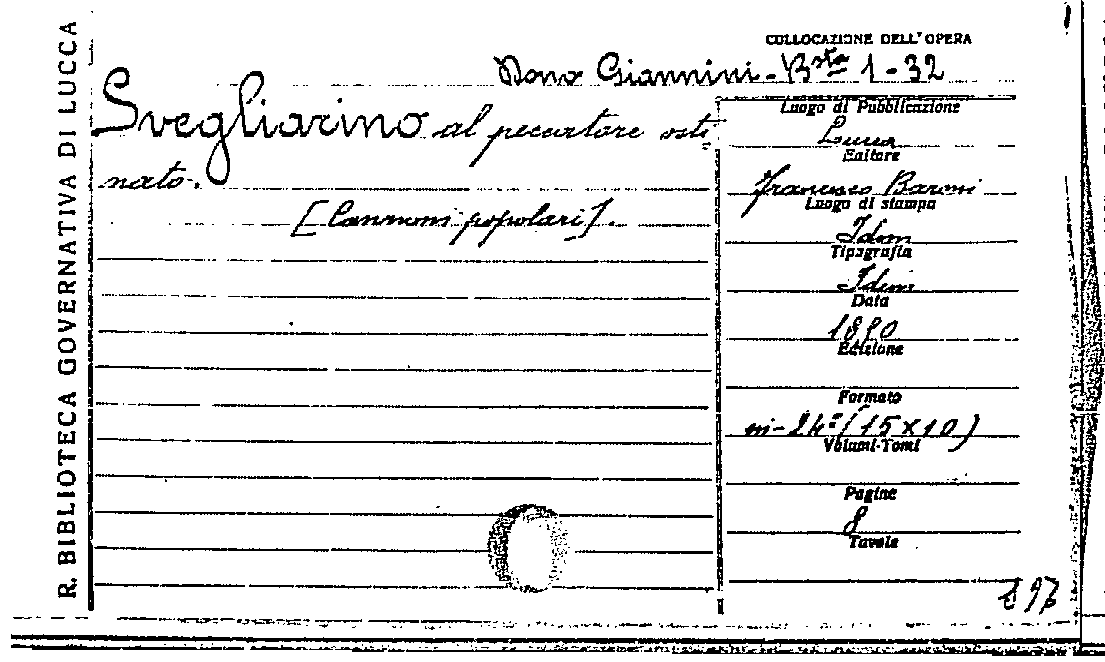 R. BIBLIOTECA GOVERNATIVA DI LUCCA
COLLOCAZIONE DELL'OPERA
Dono Giannini - Bsta 1-32
Svegliarino al peccatore osti
nato.
[Canzoni popolari].
Luogo di Pubblicazione
Lucca
Editore
Francesco Baroni
Luogo di stampa
Idem
Tipografia
Idem
Data
1890
Edizione
Formato
in-24º (15x10)
Volumi-Tomi
Pagine
8
Tavole